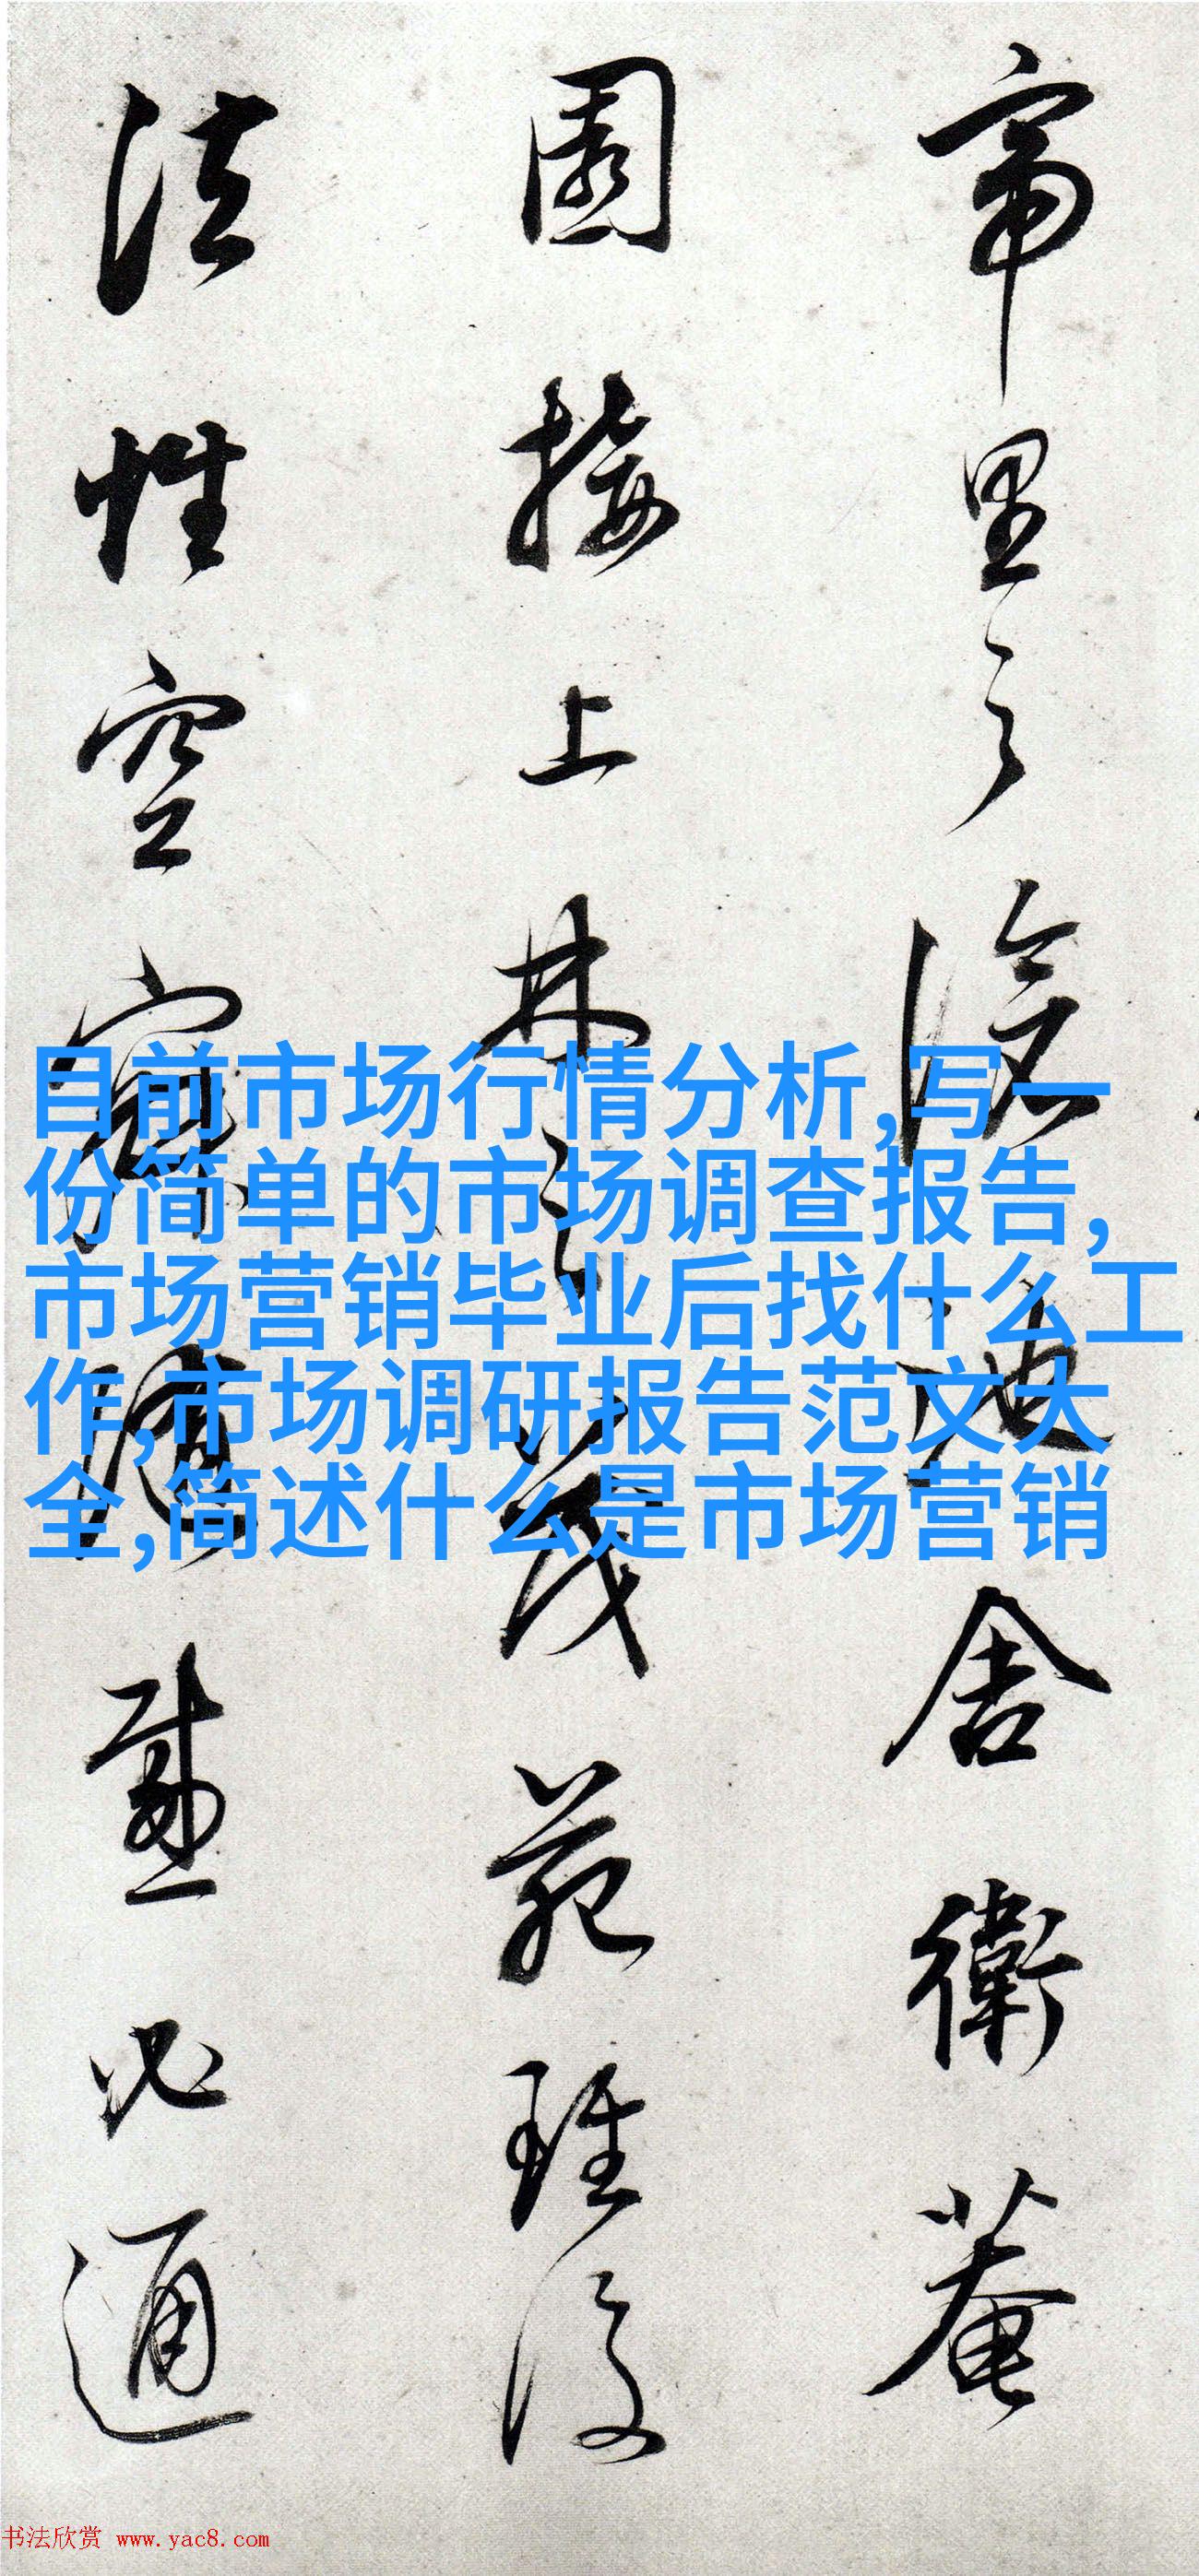 帝里之滄池舍衛菴
園接上林之茂苑雖復
法性空寂隨感必通
目前市场行情分析,写一
份简单的市场调查报告,
市场营销毕业后找什么工
作,市场调研报告范文大
全,简述什么是市场营销
书法欣赏 www.yac8.com